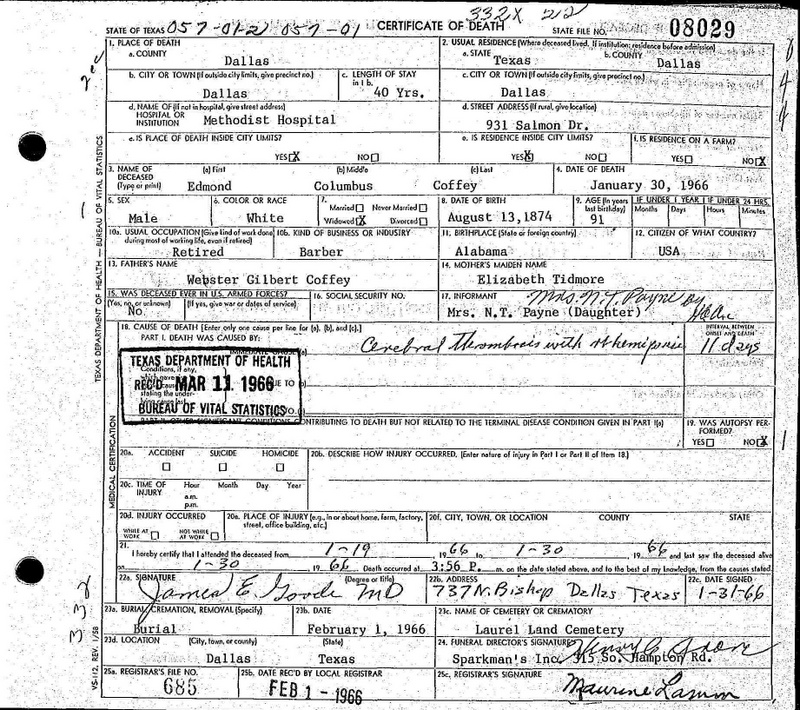 332X 212
STATE OF TEXAS 057-012 057-01 CERTIFICATE OF DEATH STATE FILE NO. 08029
1. PLACE OF DEATH 2. USUAL RESIDENCE (Where deceased lived. If institution: residence before admission)
a. COUNTY a. STATE b. COUNTY
Dallas Texas Dallas
b. CITY OR TOWN (If outside city limits, give precinct no.) c. LENGTH OF STAY c. CITY OR TOWN (If outside city limits, give precinct no.)
in 1 b.
Dallas 40 Yrs. Dallas
d. NAME OF (If not in hospital, give street address) d. STREET ADDRESS (If rural, give location)
HOSPITAL OR
INSTITUTION Methodist Hospital 931 Salmon Dr.
e. IS PLACE OF DEATH INSIDE CITY LIMITS? e. IS RESIDENCE INSIDE CITY LIMITS? f. IS RESIDENCE ON A FARM?
YES X NO YES X NO YES NO X
3. NAME OF (a) First (b) Middle (c) Last 4. DATE OF DEATH
DECEASED
(Type or print) Edmond Columbus Coffey January 30, 1966
5. SEX 6. COLOR OR RACE 7. Married Never Married 8. DATE OF BIRTH 9. AGE (In years IF UNDER 1 YEAR IF UNDER 24 HRS.
last birthday) Months Days Hours Minutes
Male White Widowed X Divorced August 13, 1874 91
10a. USUAL OCCUPATION (Give kind of work done 10b. KIND OF BUSINESS OR INDUSTRY 11. BIRTHPLACE (State or foreign country) 12. CITIZEN OF WHAT COUNTRY?
during most of working life, even if retired)
Retired Barber Alabama USA
13. FATHER'S NAME 14. MOTHER'S MAIDEN NAME
Webster Gilbert Coffey Elizabeth Tidmore
15. WAS DECEASED EVER IN U.S. ARMED FORCES? 16. SOCIAL SECURITY NO. 17. INFORMANT Mrs. N.T. Payne by
(Yes, no, or unknown) (If yes, give war or dates of service)
No Mrs. N.T. Payne (Daughter)
18. CAUSE OF DEATH [Enter only one cause per line for (a), (b), and (c).] INTERVAL BETWEEN
ONSET AND DEATH
PART I. DEATH WAS CAUSED BY:
Cerebral thrombosis with rt hemiparesis 11 days
TEXAS DEPARTMENT OF HEALTH
REC'D MAR 11 1966 DUE TO (b)
BUREAU OF VITAL STATISTICS
PART II. OTHER SIGNIFICANT CONDITIONS CONTRIBUTING TO DEATH BUT NOT RELATED TO THE TERMINAL DISEASE CONDITION GIVEN IN PART I(a) 19. WAS AUTOPSY PERFORMED?
YES NO X
20a. ACCIDENT SUICIDE HOMICIDE 20b. DESCRIBE HOW INJURY OCCURRED. (Enter nature of injury in Part I or Part II of Item 18.)
20c. TIME OF Hour Month Day Year
INJURY a.m.
p.m.
20d. INJURY OCCURRED 20e. PLACE OF INJURY (e.g., in or about home, farm, factory, 20f. CITY, TOWN, OR LOCATION COUNTY STATE
street, office building, etc.)
WHILE AT WORK NOT WHILE AT WORK
21. I hereby certify that I attended the deceased from 1-19 1966 to 1-30 1966 and last saw the deceased alive
on 1-30 1966 Death occurred at 3:56 P. m. on the date stated above, and to the best of my knowledge, from the causes stated.
22a. SIGNATURE (Degree or title) 22b. ADDRESS 22c. DATE SIGNED
James E. Goode MD 737 N. Bishop Dallas Texas 1-31-66
23a. BURIAL, CREMATION, REMOVAL (Specify) 23b. DATE 23c. NAME OF CEMETERY OR CREMATORY
Burial February 1, 1966 Laurel Land Cemetery
23d. LOCATION (City, town, or county) (State) 24. FUNERAL DIRECTOR'S SIGNATURE
Dallas Texas Sparkman's Inc. 315 So. Hampton Rd.
25a. REGISTRAR'S FILE NO. 25b. DATE REC'D BY LOCAL REGISTRAR 25c. REGISTRAR'S SIGNATURE
685 FEB 1 - 1966
TEXAS DEPARTMENT OF HEALTH — BUREAU OF VITAL STATISTICS
MEDICAL CERTIFICATION
VS-112, REV. 1/58
332